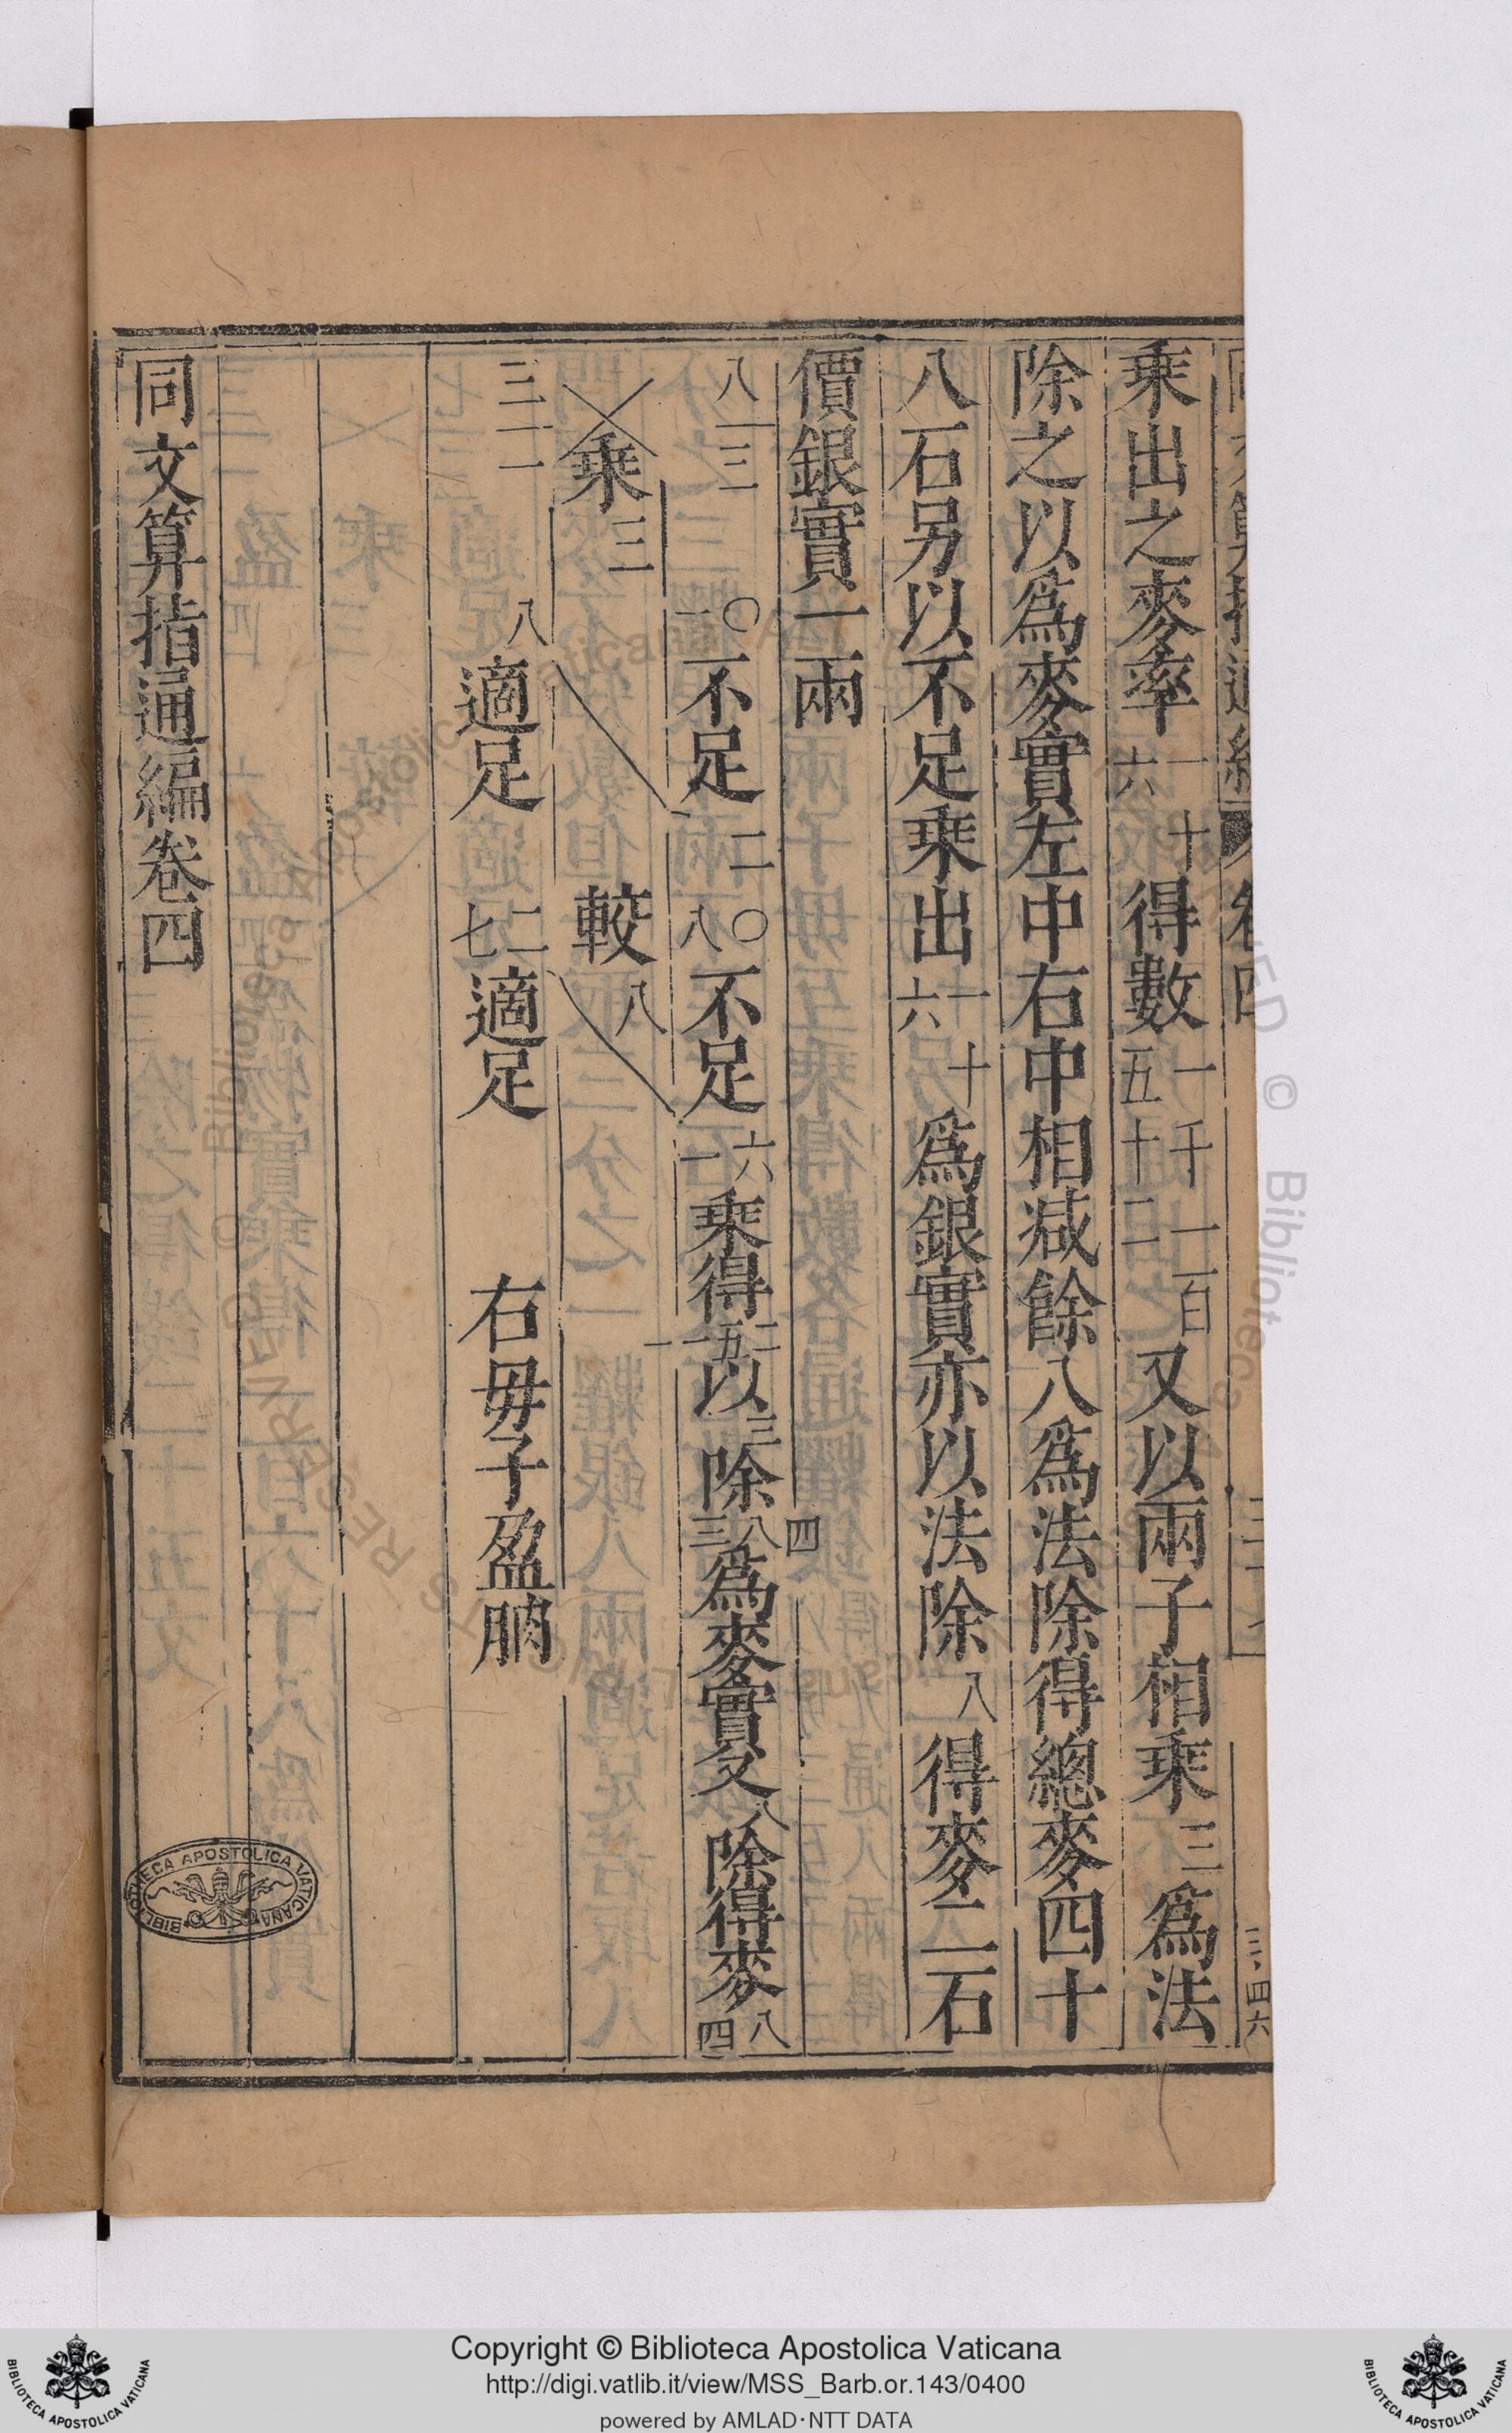 乘出之麥率一十六得數一千一百五十二又以兩子相乘三爲法
除之以爲麥實左中右中相减餘八爲法除得總麥四十
八石另以不足乘出一十六爲銀實亦以法除八得麥二石
價銀實一兩
八一三 〇一不足 二〇八不足 六一乘得 以三除 三八四爲麥實又八除得麥四八
乘三 較八
三一一 八適足 二七適足 右毋子盈朒
同文算指通編卷四
三四六
Copyright © Biblioteca Apostolica Vaticana
http://digi.vatlib.it/view/MSS_Barb.or.143/0400
powered by AMLAD·NTT DATA
BIBLIOTECA APOSTOLICA VATICANA